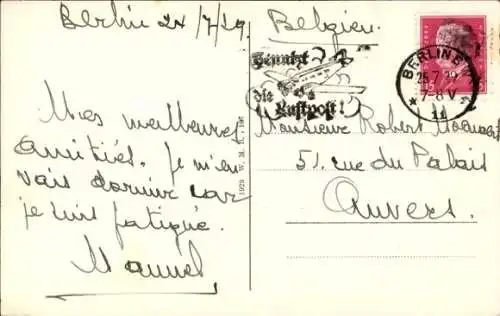 Berlin 24/7/29
Mes meilleures
amitiés. Je m'en
vais dormir car
je suis fatigué.
Manuel
1929 W. M. B.
Belgien
Benutzt
die
Luftpost!
BERLIN
25.7.29
7-8 V
* 11
Monsieur Robert
51 rue du Palais
Anvers.